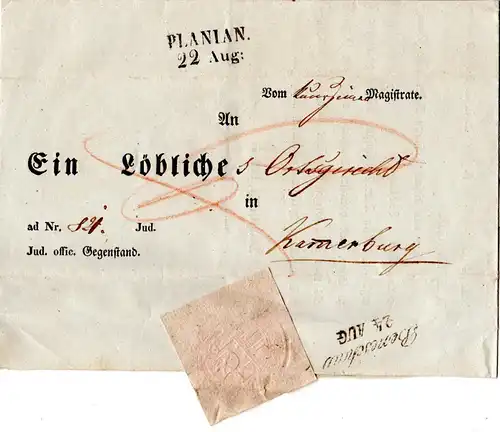 PLANIAN.
22 Aug:
Vom Kaurzimer Magistrate.
An
Ein Löbliches Ortsgericht
in
ad Nr. 84. Jud. Kammerburg
Jud. offic. Gegenstand.
Beneschau
24 AUG